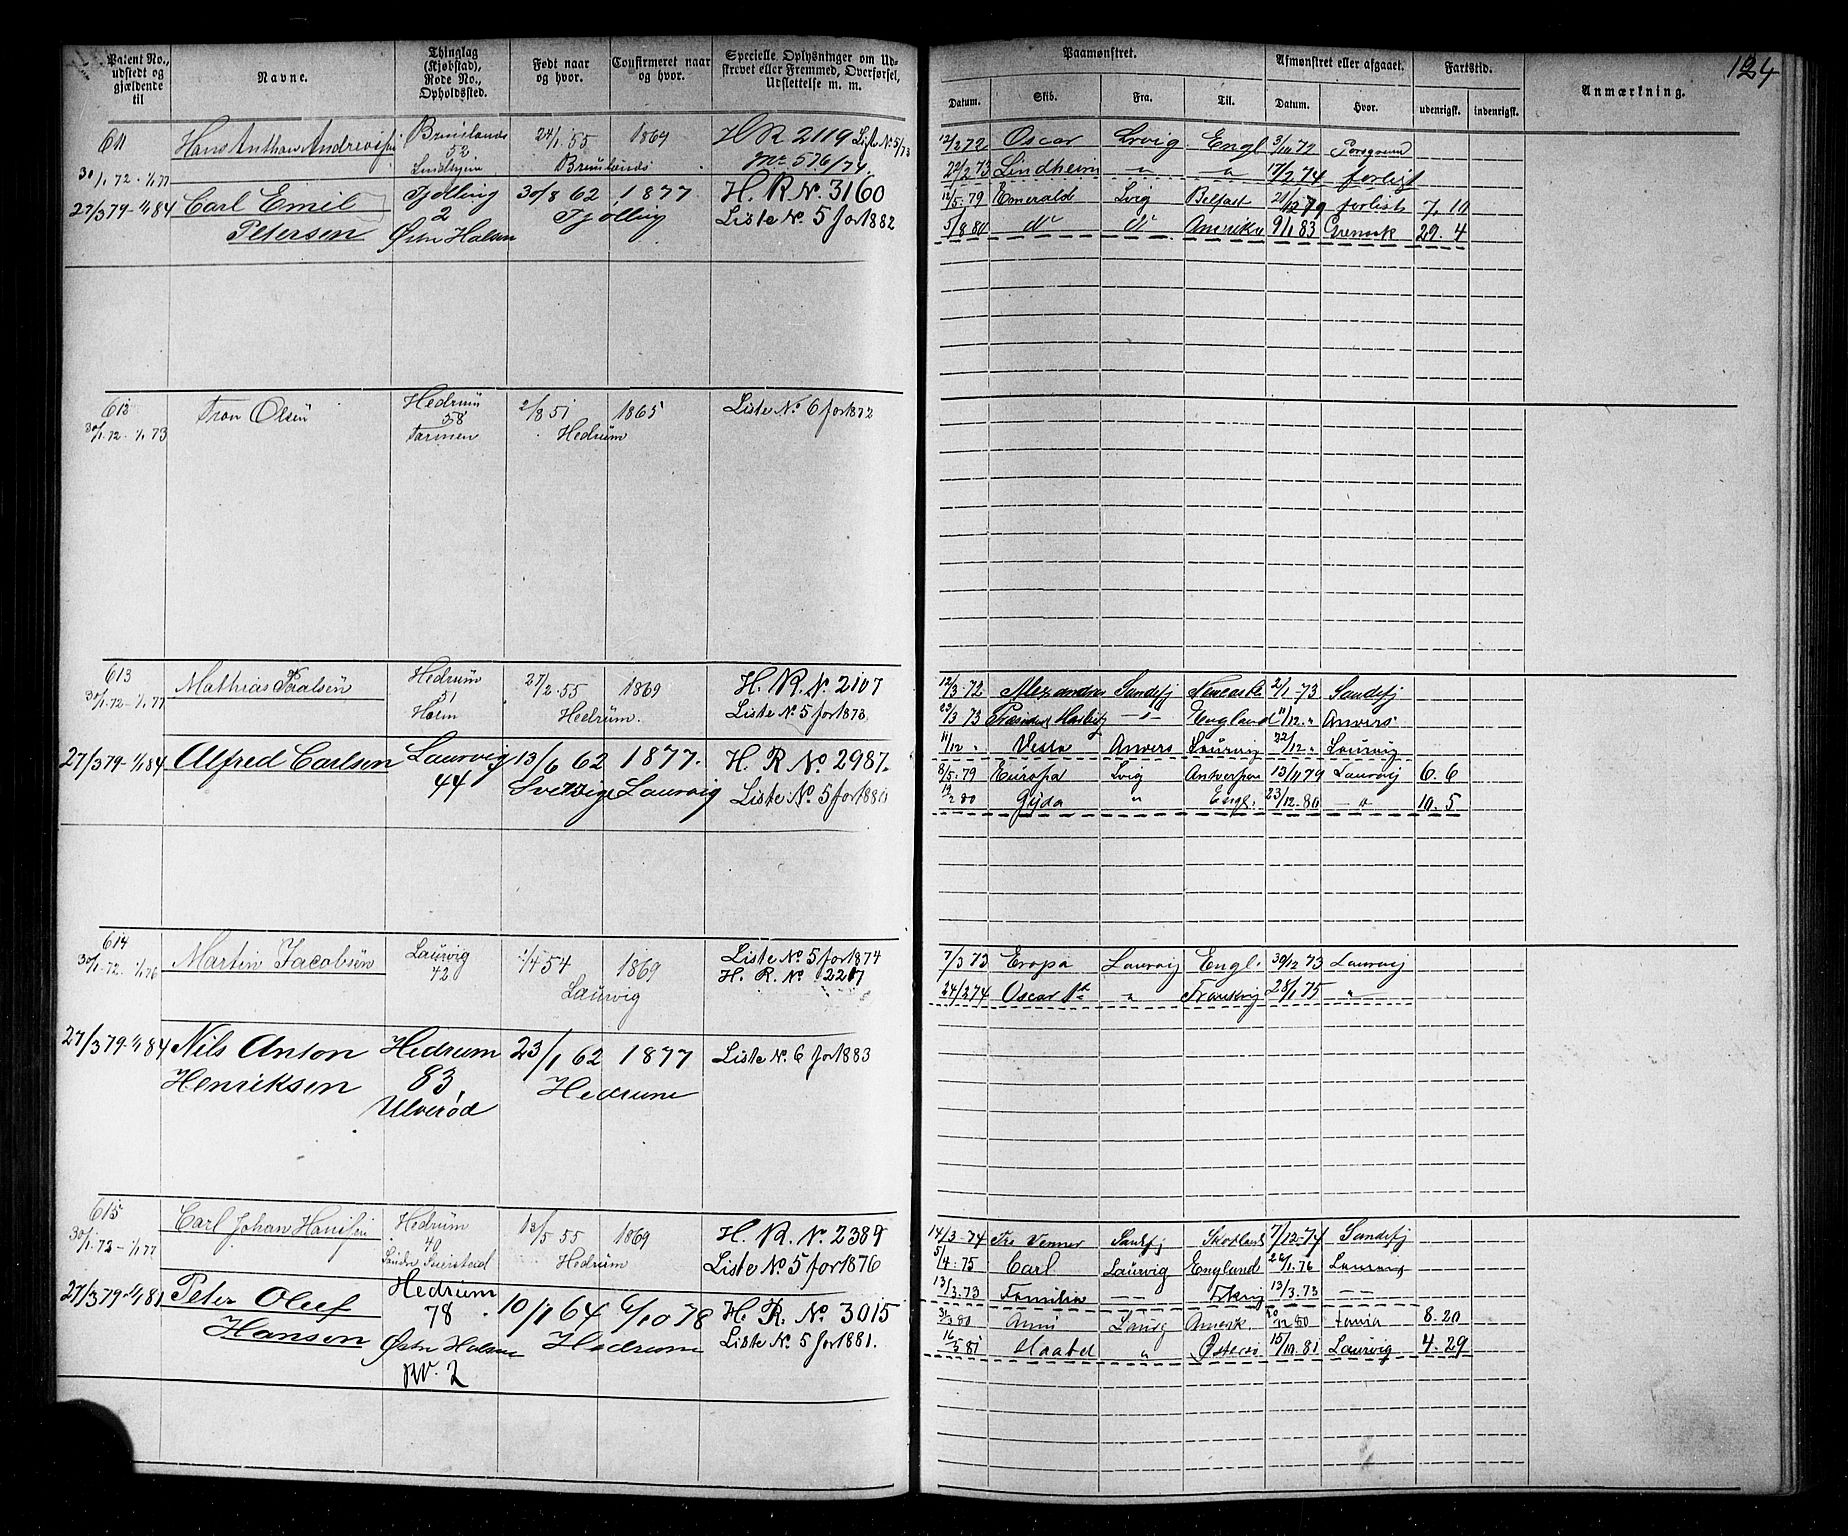 124
Patent No., udstedt og gjældende til
Navne.
Thinglag (Kjøbstad), Rode No., Opholdssted.
Født naar og hvor.
Confirmeret naar og hvor.
Specielle Oplysninger om Udskrevet eller Fremmed, Overførsel, Udslettelse m. m.
Paamønstret.
Datum. Skib. Fra. Til.
Afmønstret eller afgaaet.
Datum. Hvor.
Fartstid.
udenrigsk. indenrigsk.
Anmærkning.
611 Hans Anthon 52 24/1 55 1869 H R 2119
30/1 72 - 1/1 77
12/2 72 Oscar Lrvig Engl 3/10 72
22/2 73 Lindheim " " 17/2 74 forligt
27/3 79 - 1/1 84 Carl Emil Petersen Tjølling 2 Østn Halsen 30/8 62 1877 Tjølling H. R. No. 3160
Liste No. 5 for 1882
12/5 79 Esmerald Lvig Belfast forlist 7. 10
5/8 80 do do Amerika 9/1 83 Grenock 29. 4
612 Tron Olsen Hedrum 58 2/8 51 1865 Liste No. 6 for 1872
30/1 72 - 1/1 73 Tarmen Hedrum
613 Mathias Paalsen Hedrum 51 Holm 27/2 55 1869 Hedrum. H. R. No. 2107
30/1 72 - 1/1 77 Liste No. 5 for 1873
12/3 72 Alexandra Sandefj Newcastle 2/1 73 Sandefj
23/3 73 England Anvers
11/12 " Vesta Anvers Laurvig 22/12 " Laurvig
27/3 79 - 1/1 84 Alfred Carlsen Laurvig 44 13/6 62 1877. H. R. No. 2987.
Sverrige Laurvig Liste No. 5 for 1880
8/5 79 Europa Lvig Antwerpen 13/11 79 Laurvig 6. 6
Gyda " Engl. 23/12 80 — " — 10. 5
614 Martin Jacobsen Laurvig 42 1/4 54 1869 Laurvig Liste No 5 for 1874
30/1 72 - 1/1 76 H. R. No 2217
7/3 73 Eropa Laurvig Engl. 30/12 73 Laurvig
24/2 74 Oscar " 28/1 75 "
27/3 79 - 1/1 84 Nils Anton Henriksen Hedrum 83, Ulverød 23/1 62 1877 Hedrum Liste No. 6 for 1883
615 Carl Johan Hedrum 40 13/5 55 1869 Hedrum H. R. No 2389
30/1 72 - 1/1 77 Liste No 5 for 1876
14/3 74 Tre Venner Sandefj Skotland 7/12 74 Sandefj
5/4 75 Carl Laurvig England 26/1 76 Laurvig
13/3 73 Familia —— 13/3 73 ——
27/3 79 - 1/1 81 Peter Oluf Hanson Hedrum 78 Østn Halsen NV. 2 10/1 64 6/10 78 Hedrum H. R. No. 3015
Liste No. 5 for 1881.
31/3 80 Laurg Amerik 8. 20
16/3 81 " Østersø 15/10 81 Laurvig 4. 29